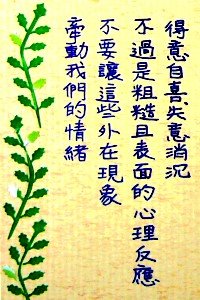 得意自喜失意消沉
不過是粗糙且表面的心理反應
不要讓這些外在現象
牽動我們的情緒